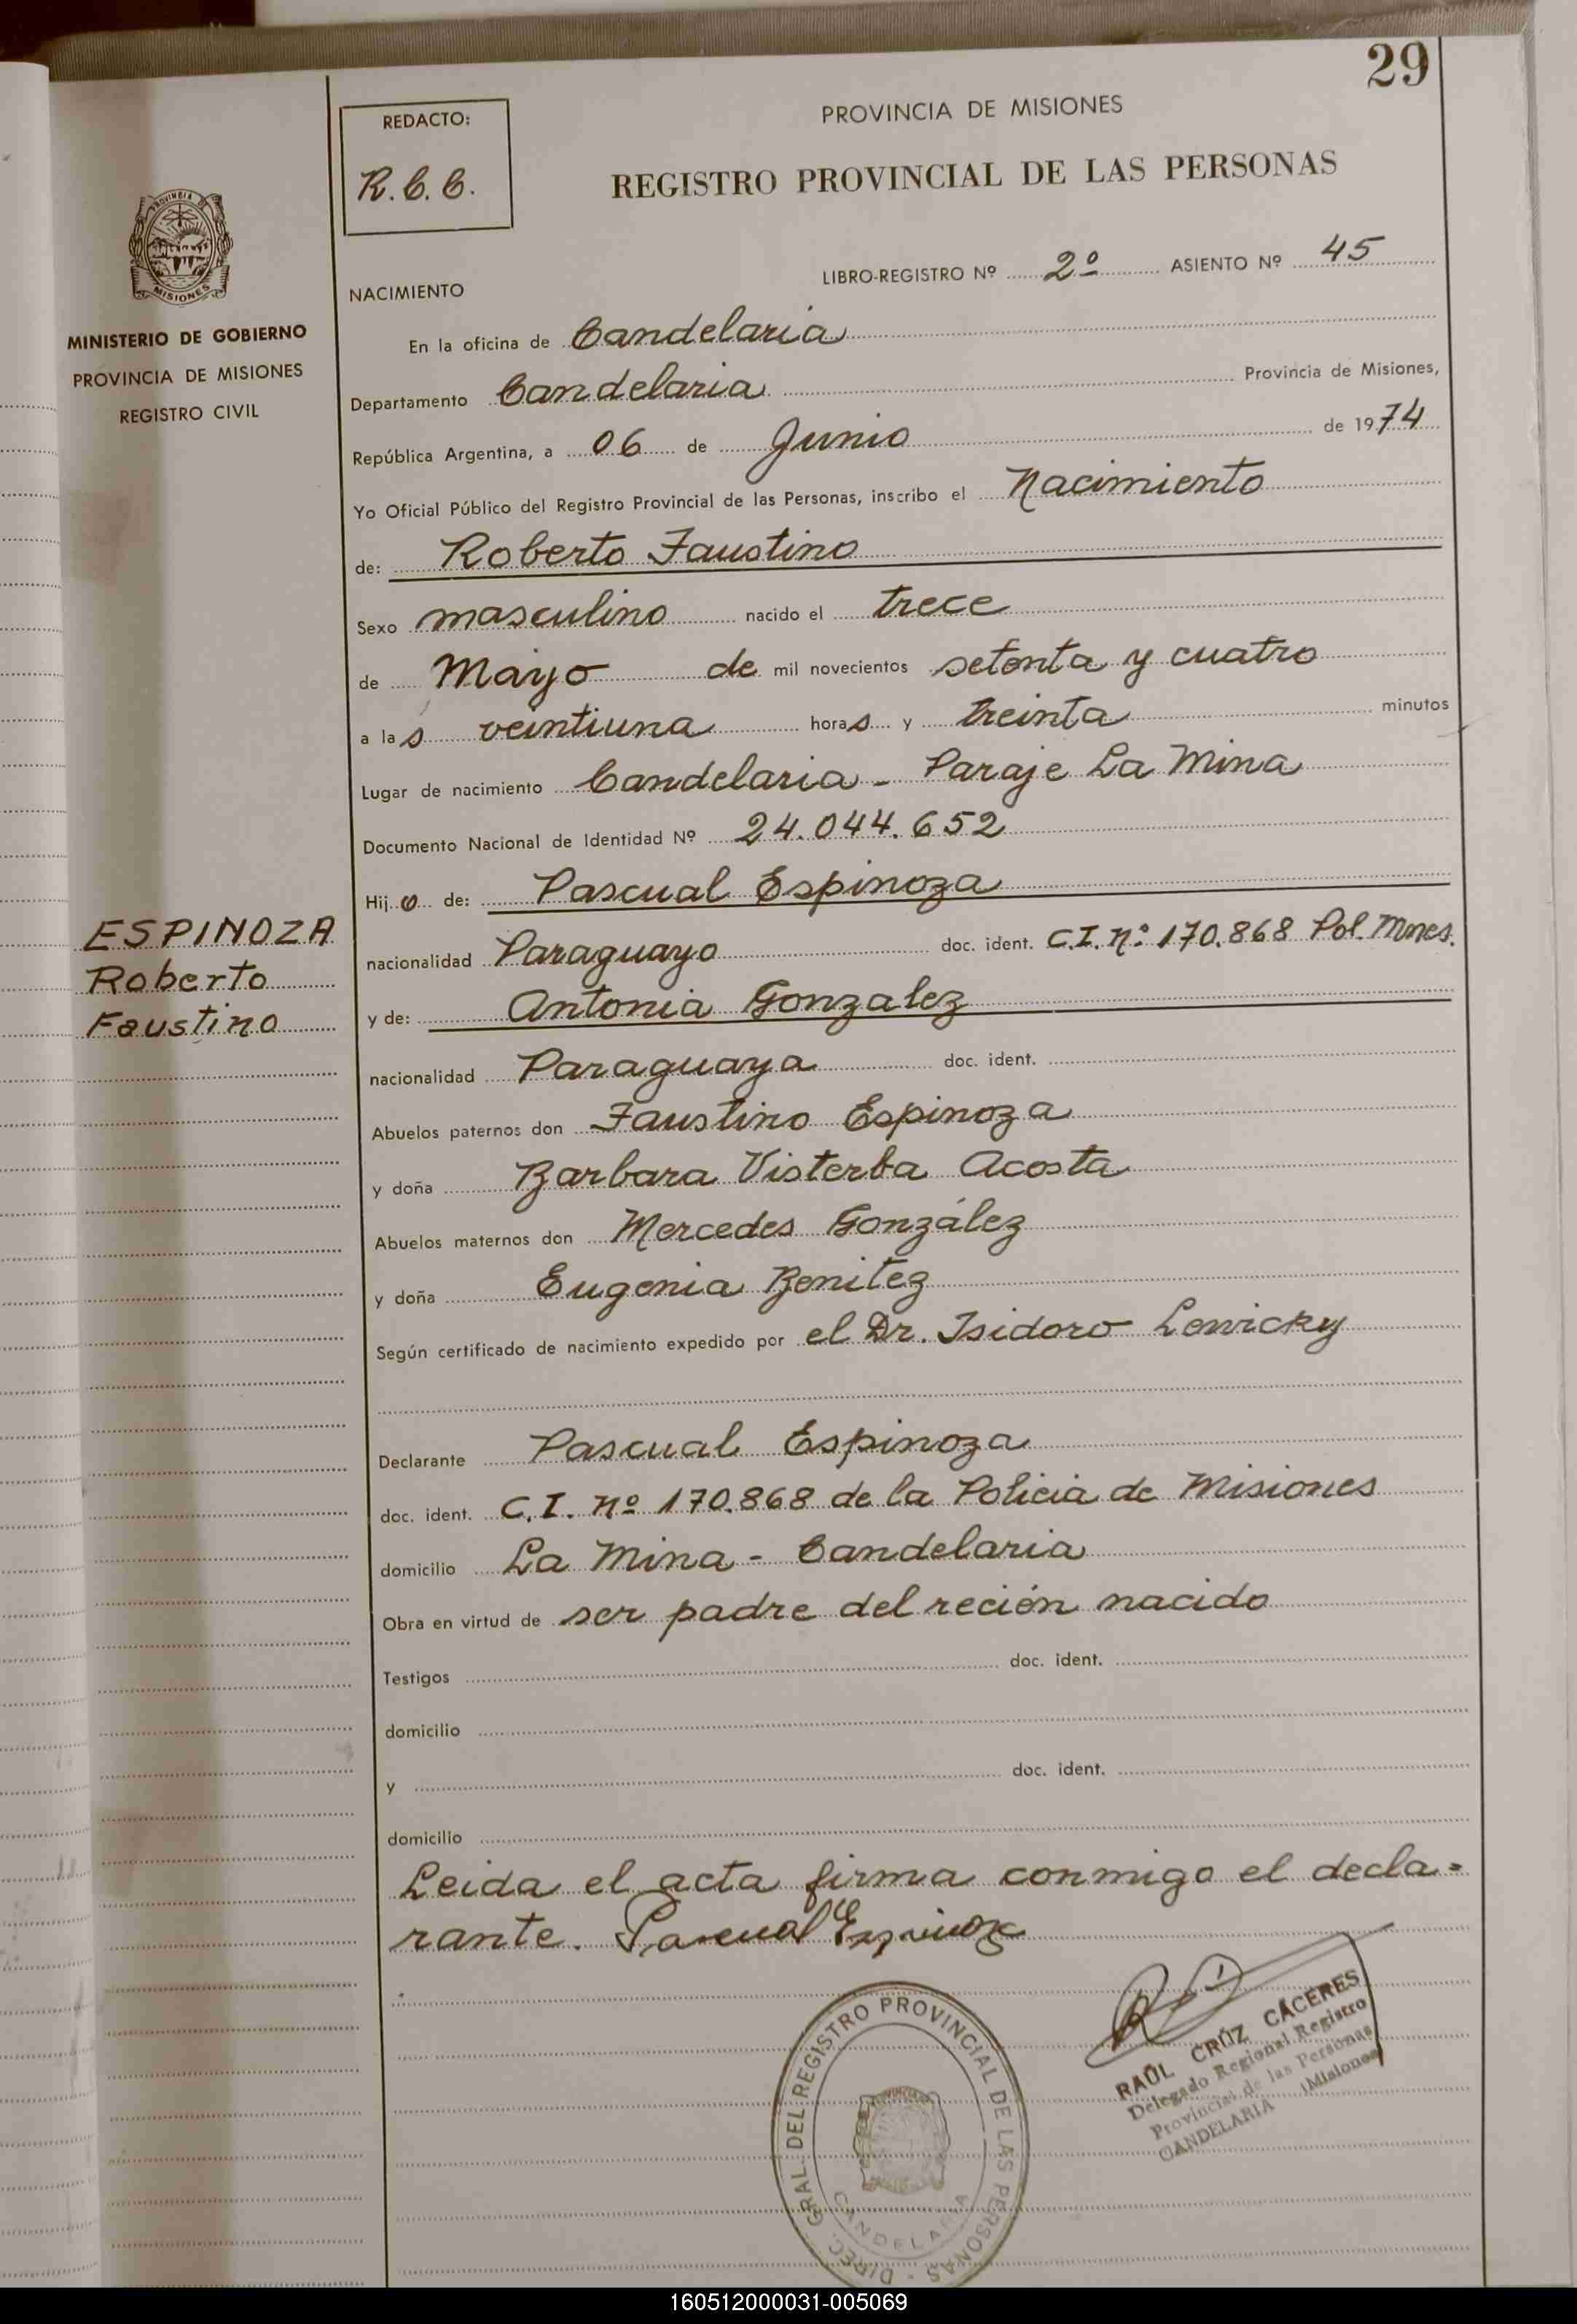 29
REDACTO:
R.C.C.
PROVINCIA DE MISIONES
REGISTRO PROVINCIAL DE LAS PERSONAS
PROVINCIA DE
MISIONES
MINISTERIO DE GOBIERNO
PROVINCIA DE MISIONES
REGISTRO CIVIL
LIBRO-REGISTRO Nº 2º ASIENTO Nº 45
NACIMIENTO
En la oficina de Candelaria
Departamento Candelaria Provincia de Misiones,
República Argentina, a 06 de Junio de 1974
Yo Oficial Público del Registro Provincial de las Personas, inscribo el Nacimiento
de: Roberto Faustino
Sexo masculino nacido el trece
de Mayo de mil novecientos setenta y cuatro
a las veintiuna horas y treinta minutos
Lugar de nacimiento Candelaria - Paraje La Mina
Documento Nacional de Identidad Nº 24.044.652
Hijo de: Pascual Espinoza
ESPINOZA
Roberto
Faustino
nacionalidad Paraguayo doc. ident. C.I. Nº 170.868 Pol. Mnes.
y de: Antonia Gonzalez
nacionalidad Paraguaya doc. ident.
Abuelos paternos don Faustino Espinoza
y doña Barbara Visterba Acosta
Abuelos maternos don Mercedes González
y doña Eugenia Benitez
Según certificado de nacimiento expedido por el Dr. Isidoro Lewicky
Declarante Pascual Espinoza
doc. ident. C.I. Nº 170.868 de la Policia de Misiones
domicilio La Mina - Candelaria
Obra en virtud de ser padre del reción nacido
Testigos doc. ident.
domicilio
y doc. ident.
domicilio
Leida el acta firma conmigo el decla=
rante. Pascual Espinoza
RAÚL CRUZ CÁCERES
Delegado Regional Registro
Provincial de las Personas
CANDELARIA (Misiones
DIREC. GRAL. DEL REGISTRO PROVINCIAL DE LAS PERSONAS
CANDELARIA
160512000031-005069